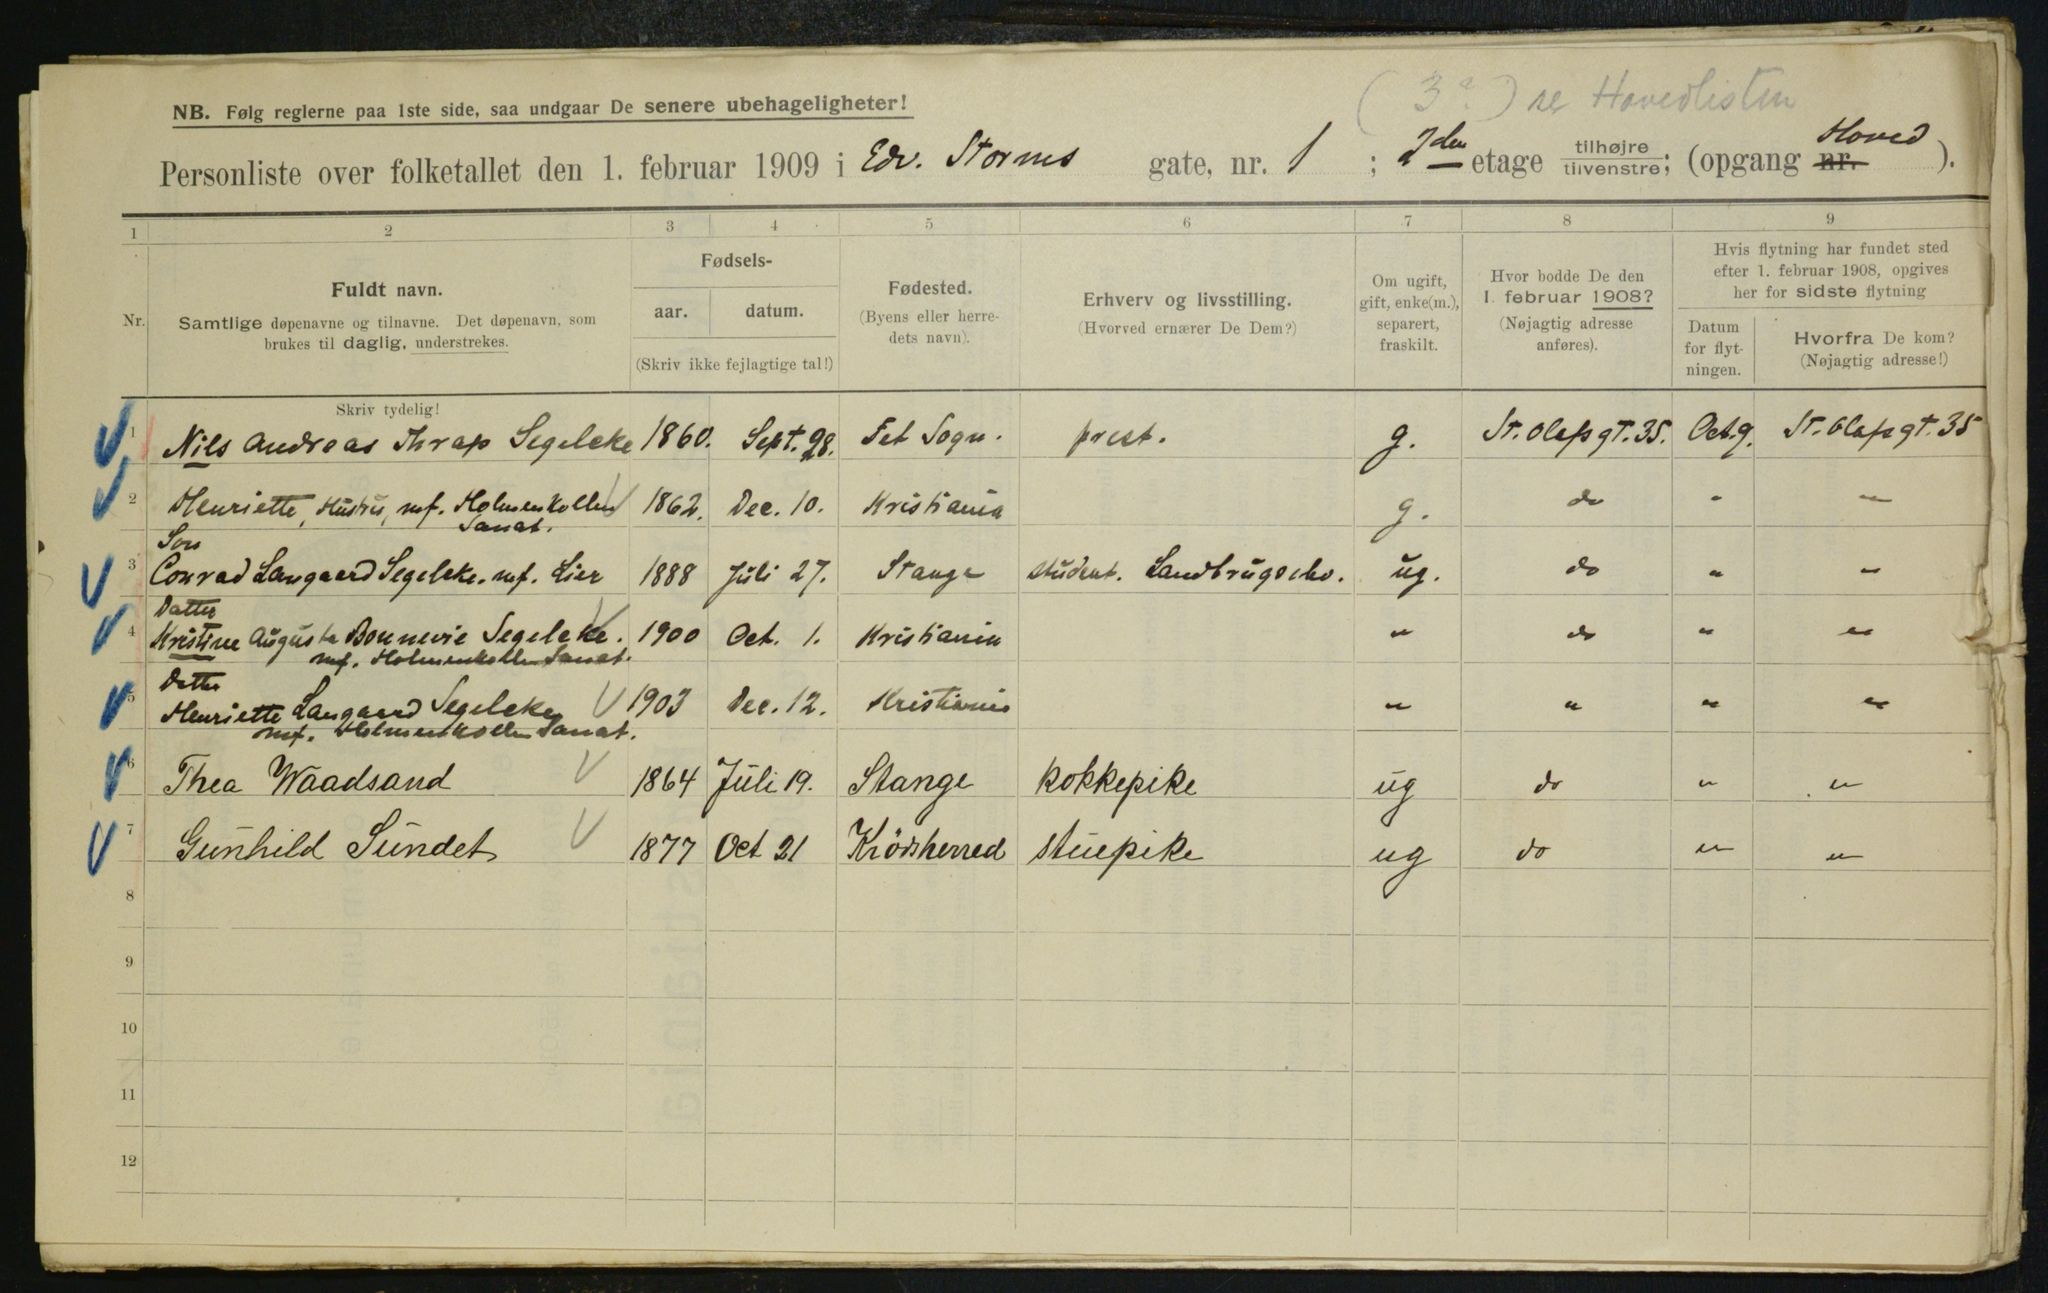 (3?) se Hovedlisten
NB. Følg reglerne paa 1ste side, saa undgaar De senere ubehageligheter!
Personliste over folketallet den 1. februar 1909 i Edv. Storms gate, nr. 1 ; 2den etage tilhøjre / tilvenstre; (opgang nr. Hoved ).
1 2 3 4 5 6 7 8 9
Nr.
Fuldt navn.
Samtlige døpenavne og tilnavne. Det døpenavn, som
brukes til daglig, understrekes.
Fødsels-
aar. datum.
(Skriv ikke fejlagtige tal!)
Fødested.
(Byens eller herre-
dets navn).
Erhverv og livsstilling.
(Hvorved ernærer De Dem?)
Om ugift,
gift, enke(m.),
separert,
fraskilt.
Hvor bodde De den
1. februar 1908?
(Nøjagtig adresse
anføres).
Hvis flytning har fundet sted
efter 1. februar 1908, opgives
her for sidste flytning
Datum
for flyt-
ningen.
Hvorfra De kom?
(Nøjagtig adresse!)
Skriv tydelig!
1 Nils Andreas Thrap Segelcke 1860. Sept. 28. Fet Sogn. prest. g. St. Olafsgt. 35. Oct. 9. St. Olafsgt. 35
2 Henriette, Hustru, mf. Holmenkollen 1862. Dec. 10. Kristiania g. do " "
Sanat.
Søn
3 Conrad Langaard Segelcke. mf. Lier 1888 Juli 27. Stange student. Landbrugssko. ug. do " "
Datter
4 Kristine Augusta Bonnevie Segelcke. 1900 Oct. 1. Kristiania " do " "
mf. Holmenkollen Sanat.
Datter
5 Henriette Langaard Segelcke 1903 Dec. 12. Kristiania " " " "
mf. Holmenkollen Sanat.
6 Thea Waadsand 1864 Juli 19. Stange kokkepike ug do " "
7 Gunhild Sundet 1877 Oct 21 Krödsherred stuepike ug do " "
8
9
10
11
12